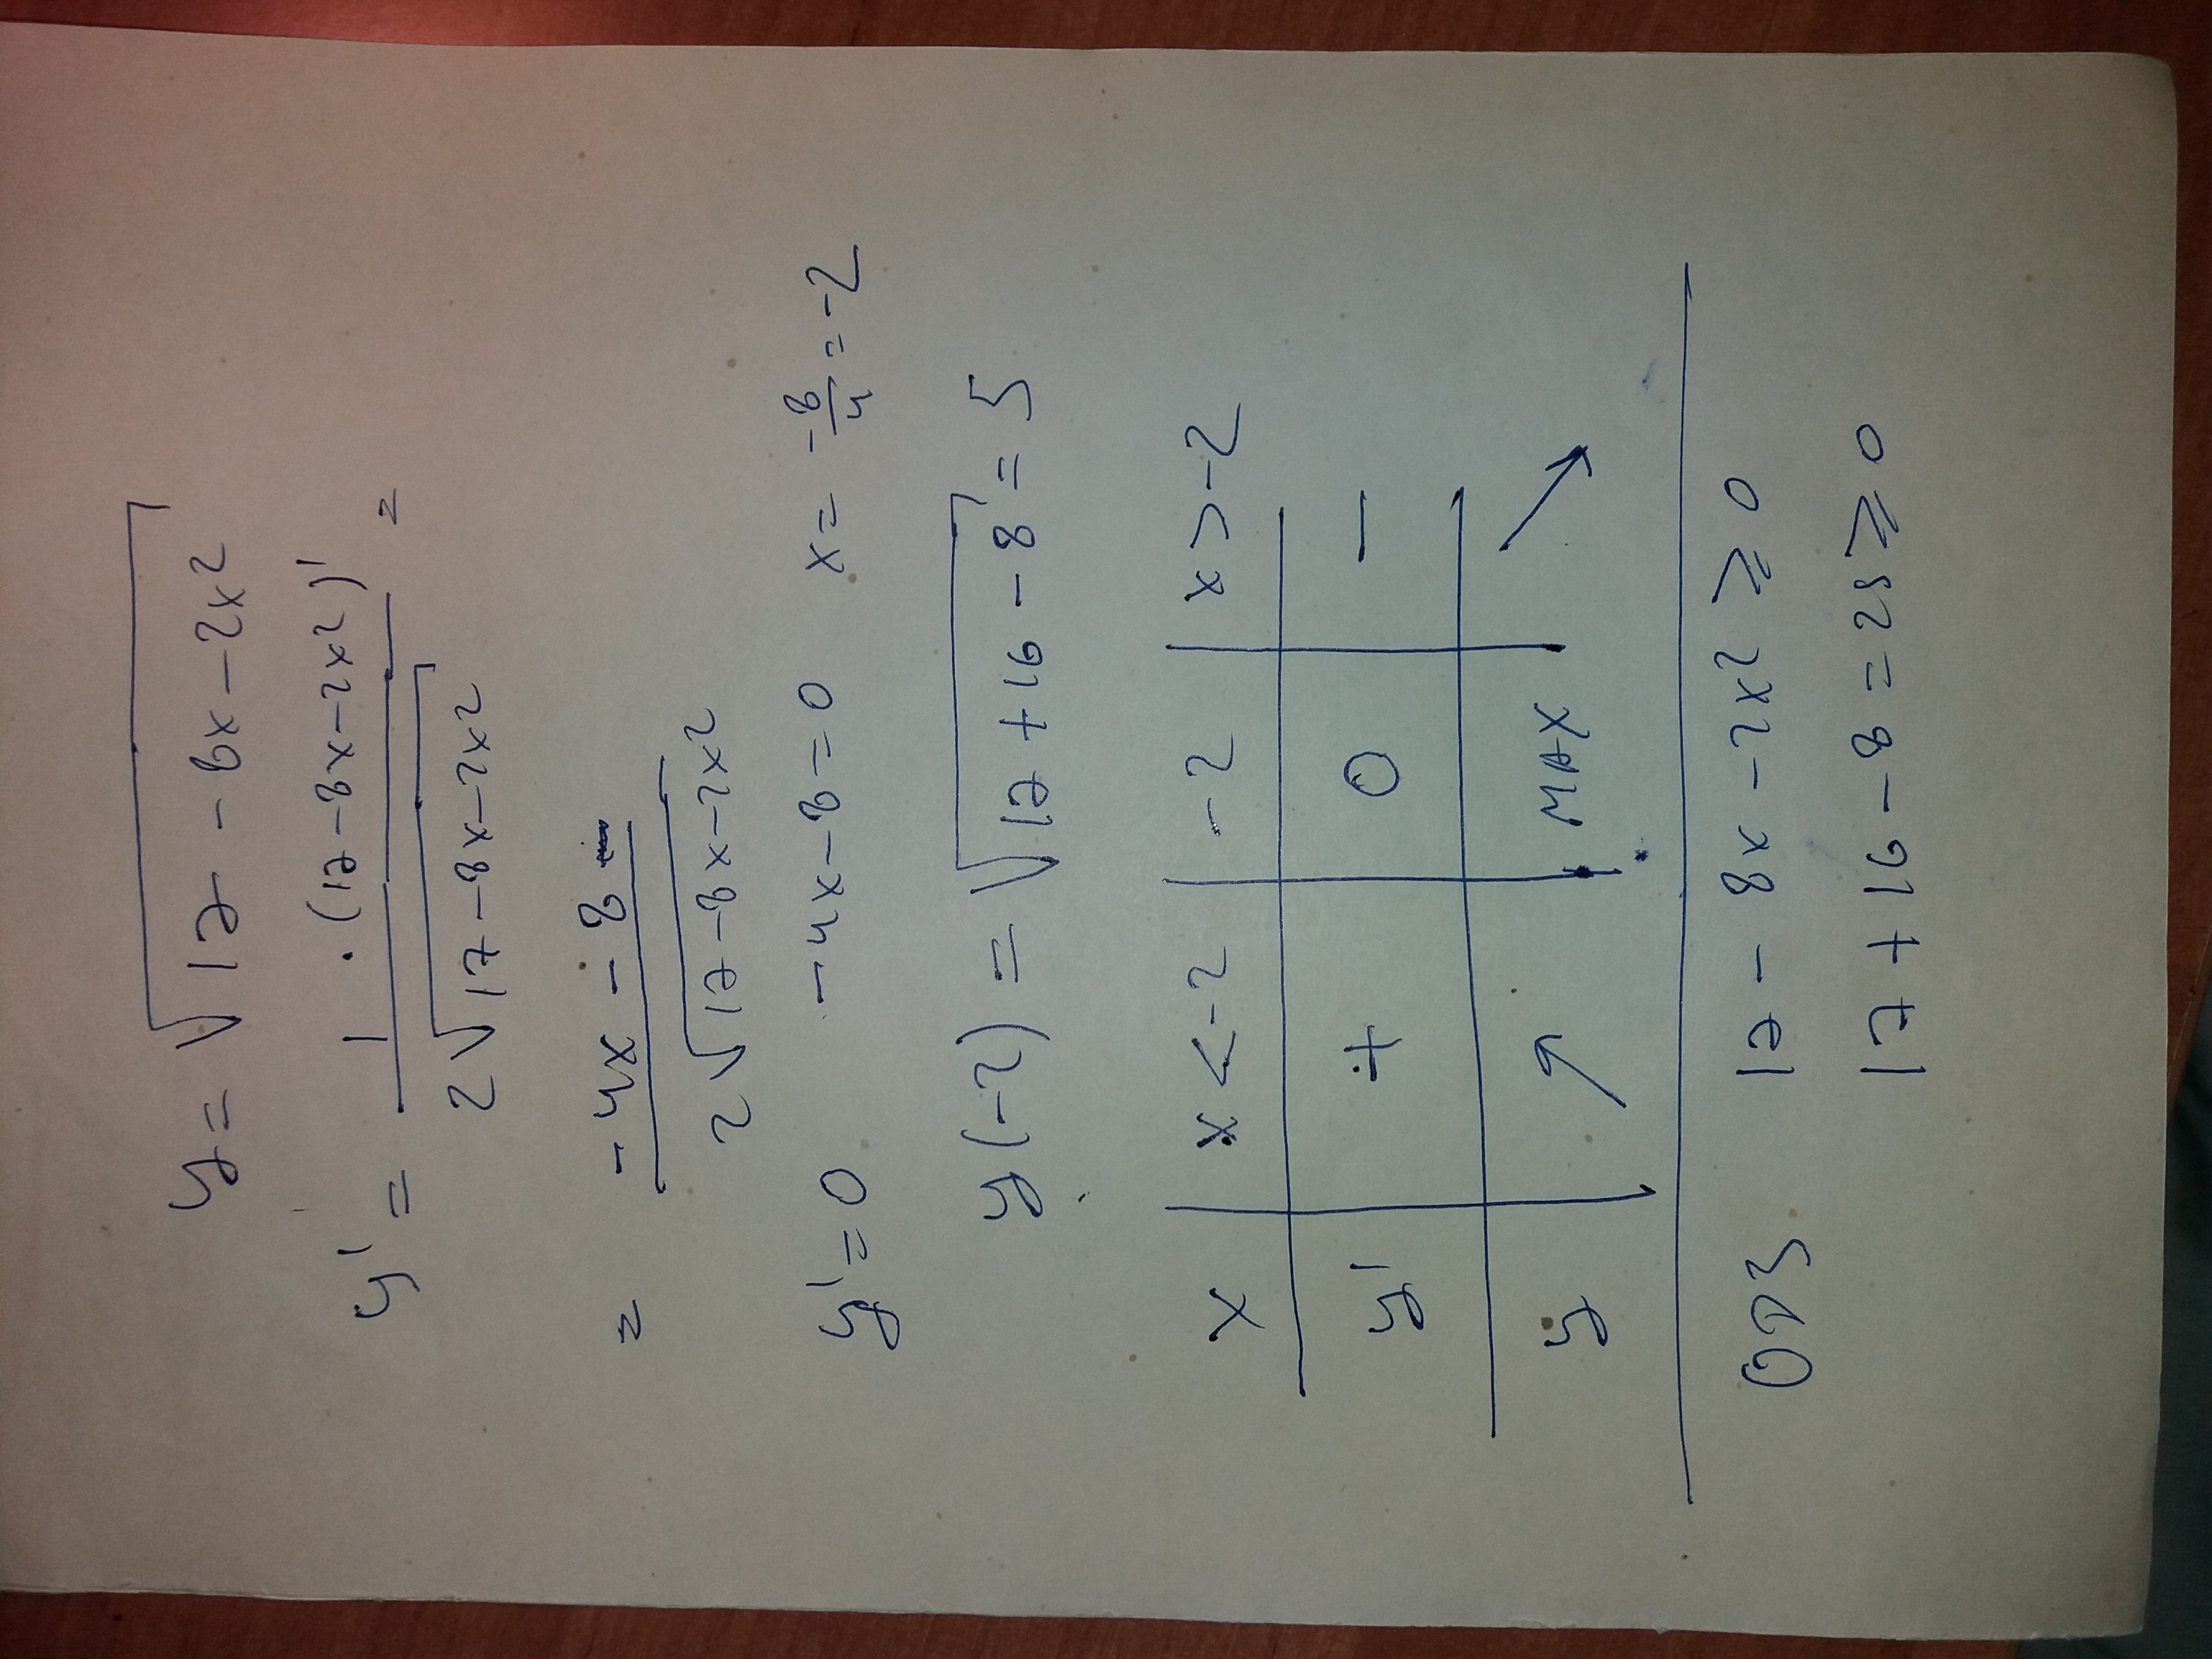 y = √(17 - 8x - 2x²)
y' = 1 · (17 - 8x - 2x²)' / 2√(17 - 8x - 2x²) =
= -4x - 8 / 2√(17 - 8x - 2x²)
y' = 0 -4x - 8 = 0 x = -8/4 = -2
y(-2) = √(17 + 16 - 8) = 5
x | x < -2 | -2 | x > -2
y' | + | 0 | —
y | ↗ | MAX | ↘
ОДЗ 17 - 8x - 2x² ⩾ 0
17 + 16 - 8 = 25 ⩾ 0